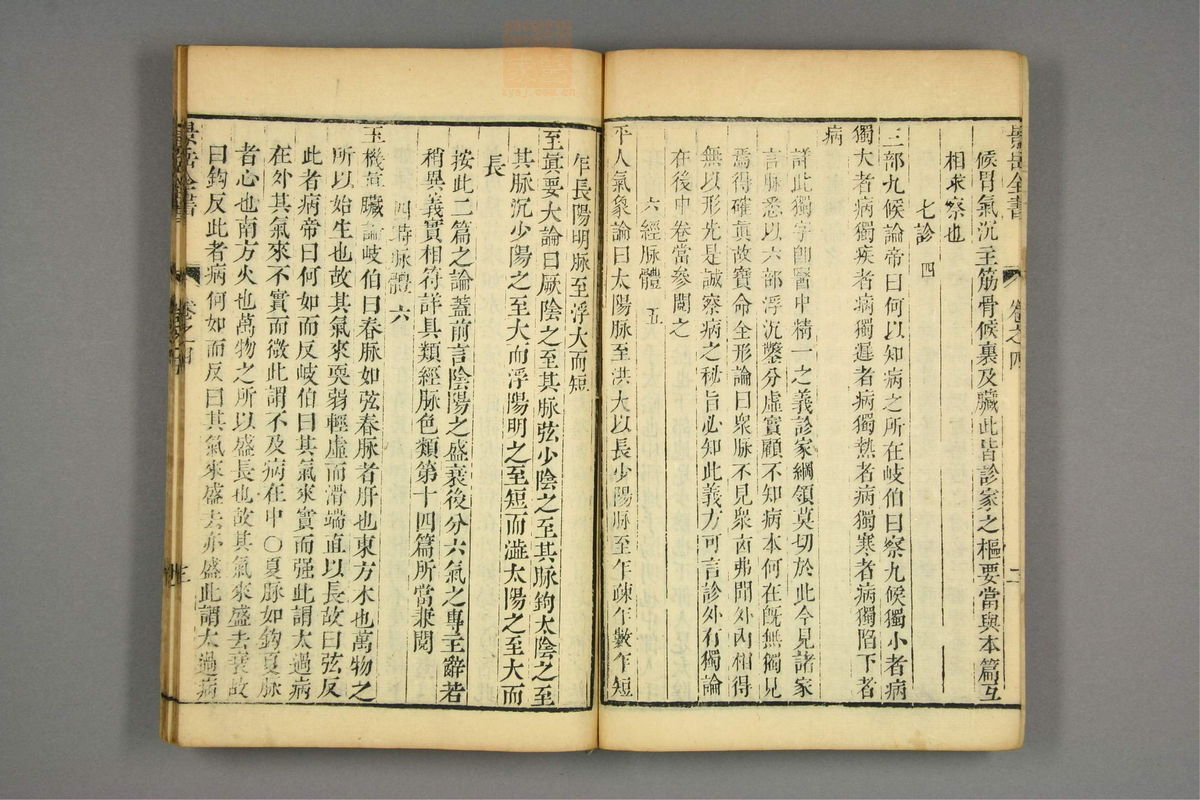 景岳全書 卷之四 二
候胃氣沉主筋骨候裏及臟此皆診家之樞要當與本篇互
相求察也
七診 四
三部九候論帝曰何以知病之所在岐伯曰察九候獨小者病
獨大者病獨疾者病獨遲者病獨熱者病獨寒者病獨陷下者
病
詳此獨字卽醫中精一之義診家綱領莫切於此今見諸家
言脉悉以六部浮沉鑿分虛實顧不知病本何在旣無獨見
焉得確眞故寶命全形論曰衆脉不見衆凶弗聞外內相得
無以形先是誠察病之秘旨必知此義方可言診外有獨論
在後中卷當參閱之
六經脉體 五
平人氣象論曰太陽脉至洪大以長少陽脉至乍疎乍數乍短
乍長陽明脉至浮大而短
至眞要大論曰厥陰之至其脉弦少陰之至其脉鉤太陰之至
其脉沉少陽之至大而浮陽明之至短而濇太陽之至大而
長
按此二篇之論蓋前言陰陽之盛衰後分六氣之專主辭若
稍異義實相符詳具類經脉色類第十四篇所當兼閱
四時脉體 六
玉機眞臟論岐伯曰春脉如弦春脉者肝也東方木也萬物之
所以始生也故其氣來耎弱輕虛而滑端直以長故曰弦反
此者病帝曰何如而反岐伯曰其氣來實而强此謂太過病
在外其氣來不實而微此謂不及病在中〇夏脉如鉤夏脉
者心也南方火也萬物之所以盛長也故其氣來盛去衰故
曰鉤反此者病何如而反曰其氣來盛去亦盛此謂太過病
景岳全書 卷之四 三